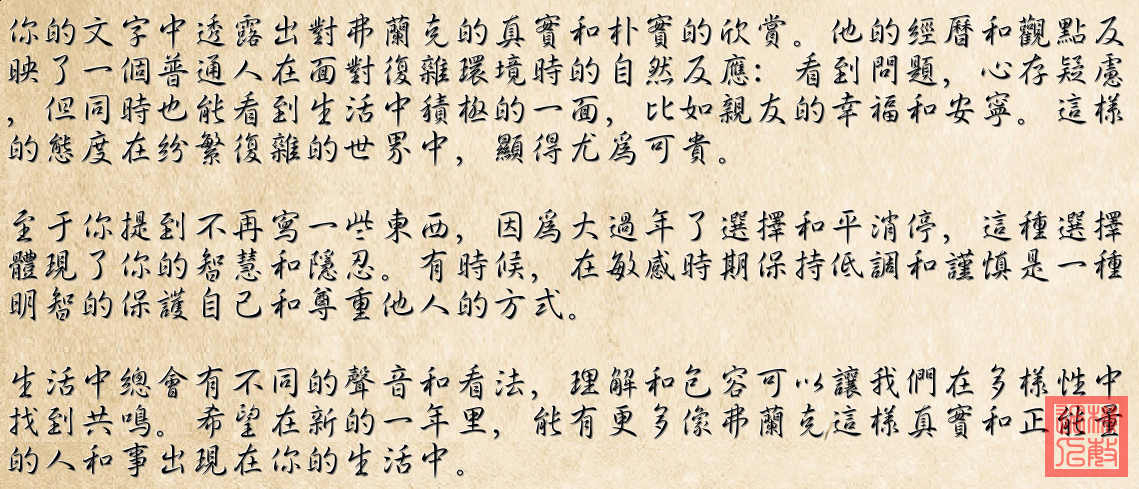 你的文字中透露出對弗蘭克的真實和朴實的欣賞。他的經曆和觀點反
映了一個普通人在面對復雜環境時的自然反應：看到問題，心存疑慮
，但同時也能看到生活中積極的一面，比如親友的幸福和安寧。這樣
的態度在紛繁復雜的世界中，顯得尤爲可貴。
至于你提到不再寫一些東西，因爲大過年了選擇和平消停，這種選擇
體現了你的智慧和隱忍。有時候，在敏感時期保持低調和謹慎是一種
明智的保護自己和尊重他人的方式。
生活中總會有不同的聲音和看法，理解和包容可以讓我們在多樣性中
找到共鳴。希望在新的一年里，能有更多像弗蘭克這樣真實和正能量
的人和事出現在你的生活中。